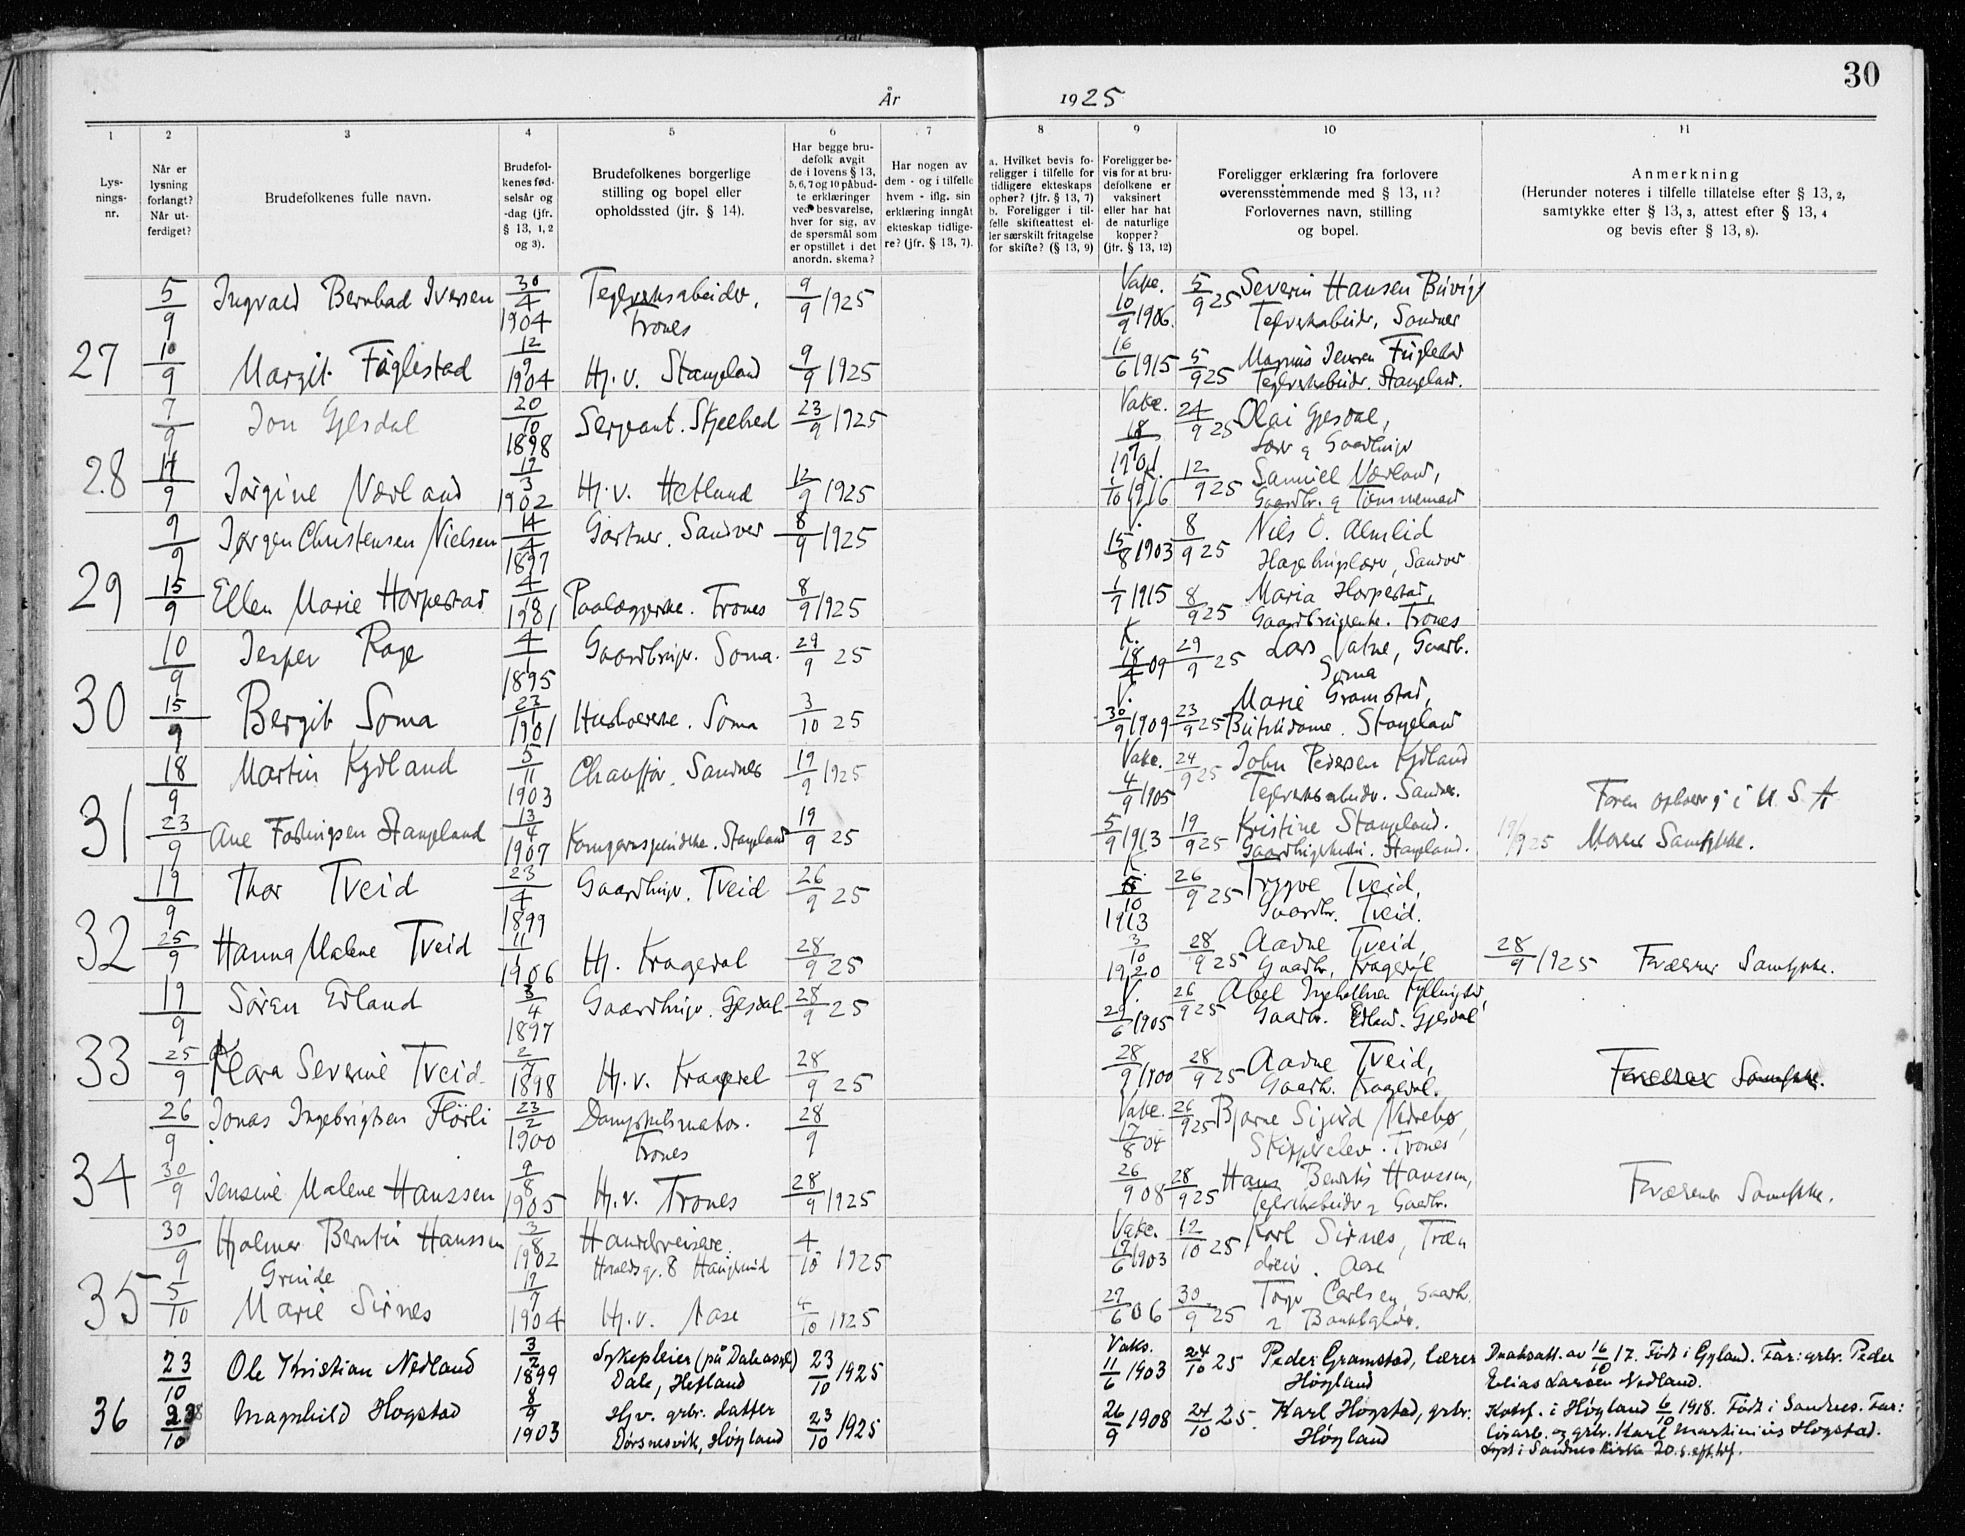 30
År 1925
1 2 3 4 5 6 7 8 9 10 11
Lys-
nings-
nr.
Når er
lysning
forlangt?
Når ut-
ferdiget?
Brudefolkenes fulle navn.
Brudefol-
kenes fød-
selsår og
-dag (jfr.
§ 13, 1, 2
og 3).
Brudefolkenes borgerlige
stilling og bopel eller
opholdssted (jfr. § 14).
Har begge bru-
defolk avgit
de i lovens § 13,
5, 6, 7 og 10 påbud-
te erklæringer
ved besvarelse,
hver for sig, av
de spørsmål som
er opstillet i det
anordn. skema?
Har nogen av
dem - og i tilfelle
hvem - iflg. sin
erklæring inngåt
ekteskap tidlige-
re? (jfr. § 13, 7).
a. Hvilket bevis fo-
religger i tilfelle for
tidligere ekteskaps
ophør? (jfr. § 13, 7)
b. Foreligger i til-
felle skifteattest el-
ler særskilt fritagelse
for skifte? (§ 13, 9)
Foreligger be-
vis for at bru-
defolkene er
vaksinert
eller har hat
de naturlige
kopper?
(jfr. § 13, 12)
Foreligger erklæring fra forlovere
overensstemmende med § 13, 11?
Forlovernes navn, stilling
og bopel.
Anmerkning
(Herunder noteres i tilfelle tillatelse efter § 13, 2,
samtykke efter § 13, 3, attest efter § 13, 4
og bevis efter § 13, 8).
5/9 Ingvald Bernhad Iversen 30/4 1904 Teglverksabeider, Trones 9/9 1925 Vakc. 10/9 1906. 5/9 25 Severin Hansen
Sandnes
27 10/9 Margit Fuglestad 12/9 1904 Hj.v. Stangeland 9/9 1925 16/6 1915 5/9 25 Magnus Jensen Fuglestad
Stangeland.
7/9 Jon Gjesdal 20/10 1898 Sergeant. 23/9 1925 Vakc. 24/9 25 Olai Gjesdal,
Lærer og Gaardbruger
28 14/9 Jørgine Nærland 19/3 1902 Hj.v. Hetland 12/9 1925 1/10 1916 12/9 25 Samuel Nærland,
Gaardbr. og
9/9 Jørgen Christensen Nielsen 14/4 1897 Gartner. Sandnes 8/9 1925 15/8 1903 8/9 25 Nils O. Almlid
Sandnes
29 15/9 Ellen Marie Horpestad Paalæggerske. Trones 8/9 1925 1/9 1915 8/9 25 Maria Horpestad,
Trones
10/9 Jesper Rage 4/1 1895 Gaardbruger. Soma. 29/9 25 K. 18/4 09 29/9 25 Lars Gaardb.
Soma
30 15/9 Bergit Soma 23/1 1901 Soma 3/10 25 V. 30/9 1909 23/9 25 Marie Gramstad,
Stangeland
18/9 Martin Kydland 5/11 1903 Chauffør. Sandnes 19/9 1925 Vakc. 4/9 1905 24/9 25 John Pedersen Kydland
Teglverksabeider. Sandnes.
31 23/9 Ane Stangeland 13/4 1907 Stangeland 19/9 25 5/9 1913 19/9 25 Kristine Stangeland.
Stangeland.
Faren i U.S.A.
19/9 25 Mores Samtykke.
19/9 Thor Tveid 23/4 1899 Gaardbruger. Tveid 26/9 25 K. 1913 26/9 25 Trygve Tveid,
Gaardbr. Tveid.
32 25/9 Hanna Malene Tveid 11/1 1906 Hj. Kragedal 28/9 25 3/10 1920 28/9 25 Aadne Tveid,
Gaardbr. Kragedal
28/9 1925 Faderens Samtykke.
19/9 Søren Edland 3/4 1897 Gaardbruger. Gjesdal 28/9 25 V. 29/6 1905 26/9 25 Abel
Gaardbr. Edland. Gjesdal
33 25/9 Klara Severine Tveid 1898 Hj.v. Kragedal 28/9 25 28/9 1900 28/9 25 Aadne Tveid,
Gaardb. Kragedal.
Faderens Samtykke.
26/9 Jonas Ingebrigtsen Flörli 23/2 1900 Trones 28/9 Vakc. 17/8 04 26/9 25 Bjarne Sigurd Nedrebø,
Skipperelev. Trones
34 30/9 Jensine Malene Hanssen 9/8 1905 Hj.v. Trones 28/9 1925 26/9 08 28/9 25 Hans Hanssen,
Teglverksabeider & Gaardbr.
Faderens Samtykke.
30/9 Hjalmar Berntin Hanssen
Grude 3/8 1902 Handelsreisende.
Haraldsg. 8 Haugesund 4/10 1925 Vakc. 17/6 1903 12/10 25 Karl Sirnes,
Aase
35 5/10 Marie Sirnes 1904 Hj.v. Aase 4/10 1925 27/6 06 30/9 25 Carlsen, Gaardb.
23/10 Ole Kristian Nedland 3/2 1899 Sykepleier (på Dale asyl)
Dale, Hetland 23/10 1925 Vaks. 11/6 1903 24/10 25 Peder Gramstad, lærer
Høyland
av 16/10 17. Født i Gyland. Far: grbr. Peder
Elias Larsen Nedland.
36 28/10 Magnhild Hogstad 8/9 1903 Hjv. grbr. datter
Høyland 23/10 1925 26/9 1908 24/10 25. Karl Hogstad, grbr.
Høyland
Konf. i Høyland 6/10 1918. Født i Sandnes. Far:
og grbr. Karl Martinius Hogstad.
Lyst i Sandnes kirke 20. s. eft. tref.